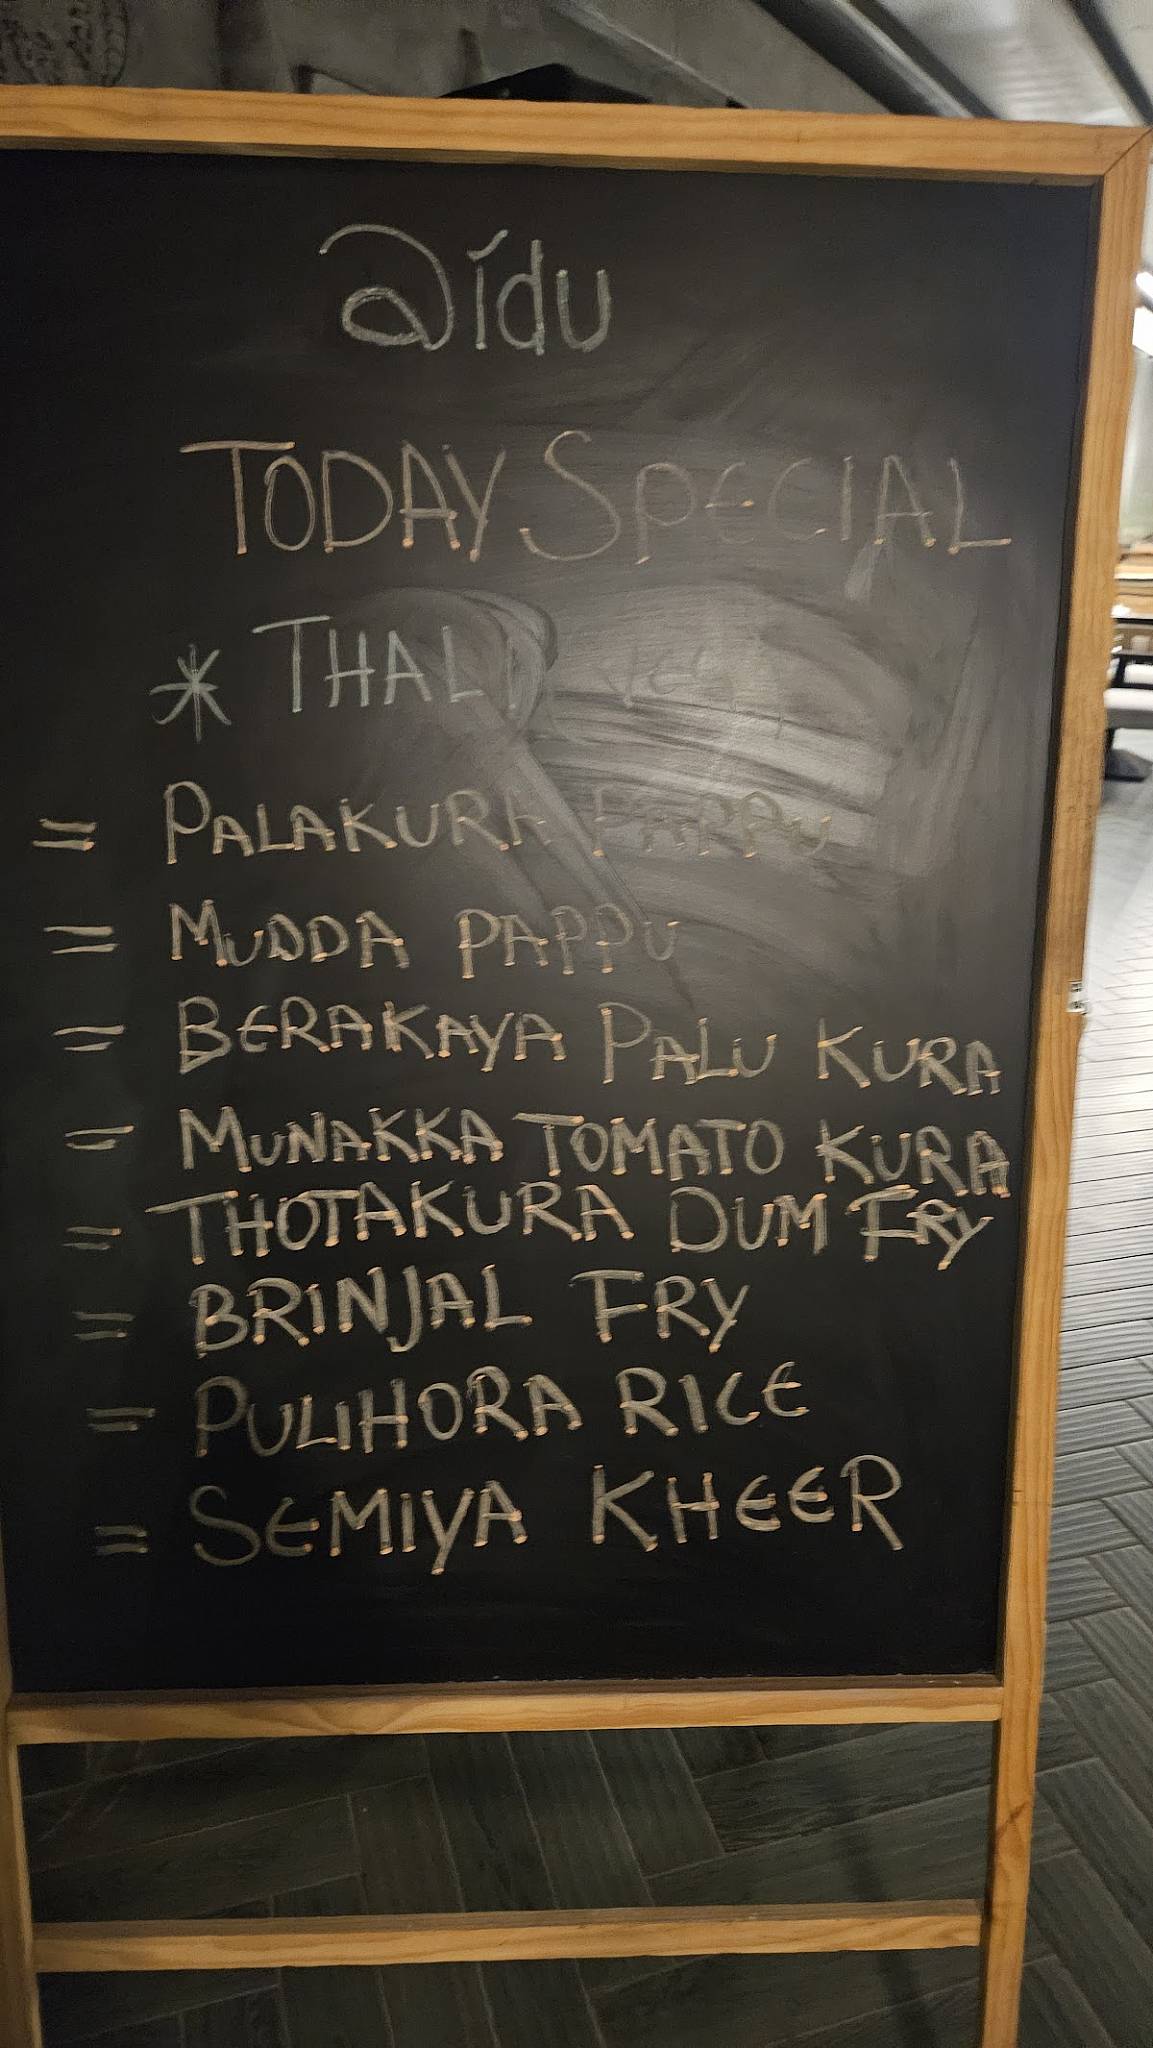 aidu
TODAY SPECIAL
* THALI
= PALAKURA PAPPU
= MUDDA PAPPU
= BERAKAYA PALU KURA
= MUNAKKA TOMATO KURA
= THOTAKURA DUM FRY
= BRINJAL FRY
= PULIHORA RICE
= SEMIYA KHEER